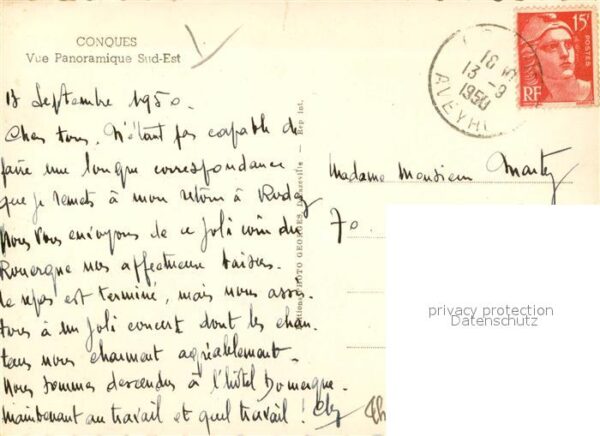 CONQUES
Vue Panoramique Sud-Est
13 Septembre 1950.
Chers tous. N'étant pas capable de
faire une longue correspondance
que je remets à mon retour à Rodez
Nous vous envoyons de ce joli coin du
Rouergue nos affectueux baisers.
le repas est terminé, mais nous assis
tons à un joli concert dont les chan
teurs nous charment agréablement.
Nous sommes descendus à l'hôtel Domergue.
Maintenant au travail et quel travail !
Editions PHOTO GEORGES, Decazeville — Rep int.
15F
POSTES
RF
13 - 9
1950
AVEYRON
Madame Monsieur
70.
privacy protection
Datenschutz